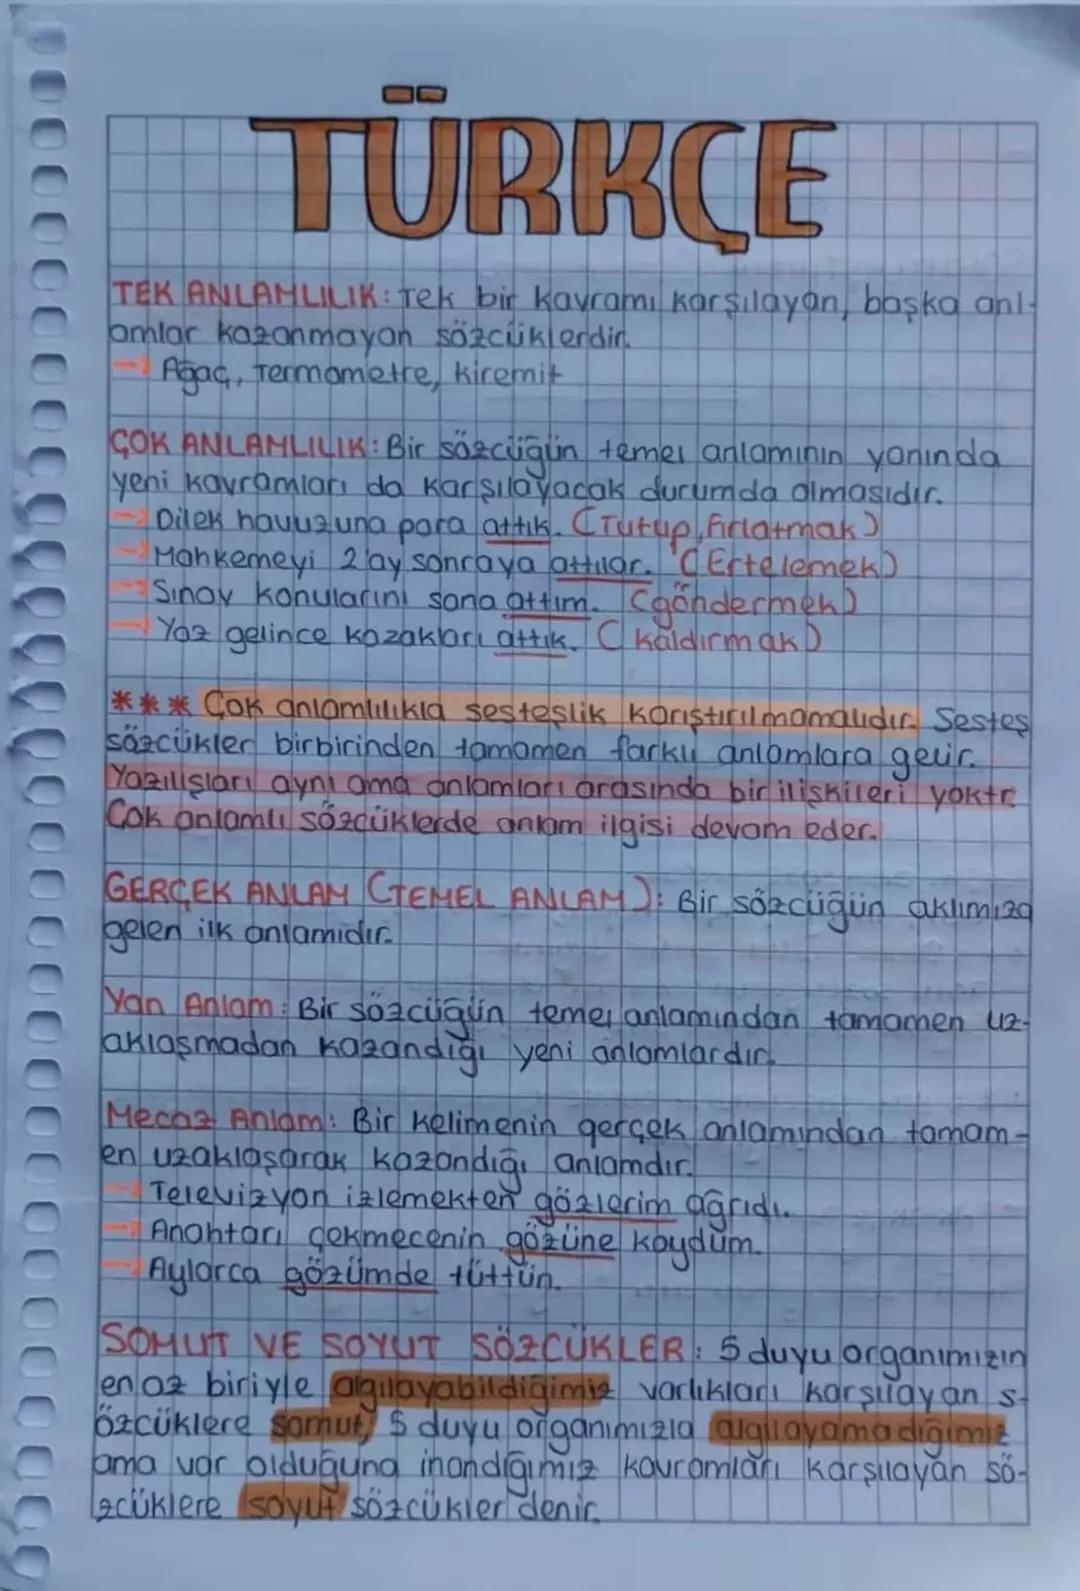 TÜRKÇE
TEK ANLAMLILIK: Tek bir kavramı karşılayan, başka anl-
amlar kazanmayan sözcüklerdir.
→ Ağaç, Termometre, kiremit
ÇOK ANLAMLILIK: Bir sözcüğün temel anlamının yanında
yeni kavramları da karşılayacak durumda olmasıdır.
→ Dilek havuzuna para attık. (Tutup, Fırlatmak)
→ Mahkemeyi 2 ay sonraya attılar. (Ertelemek)
→ Sınav konularını sana attım. (göndermek)
→ Yaz gelince kazakları attık. (kaldırmak)
*** Çok anlamlılıkla sesteşlik karıştırılmamalıdır. Sesteş
sözcükler birbirinden tamamen farklı anlamlara gelir.
Yazılışları aynı ama anlamları arasında bir ilişkileri yoktr
Çok anlamlı sözcüklerde anlam ilgisi devam eder.
GERÇEK ANLAM (TEMEL ANLAM): Bir sözcüğün aklımıza
gelen ilk anlamıdır.
Yan Anlam: Bir sözcüğün temel anlamından tamamen uz-
aklaşmadan kazandığı yeni anlamlardır.
Mecaz Anlam: Bir kelimenin gerçek anlamından tamam-
en uzaklaşarak kazandığı anlamdır.
→ Televizyon izlemekten gözlerim ağrıdı.
→ Anahtarı çekmecenin gözüne koydum.
→ Aylarca gözümde tüttün.
SOMUT VE SOYUT SÖZCÜKLER: 5 duyu organımızın
en az biriyle algılayabildiğimiz varlıkları karşılayan s-
özcüklere somut, 5 duyu organımızla algılayamadığımız
ama var olduğuna inandığımız kavramları karşılayan sö-
zcüklere soyut sözcükler denir.